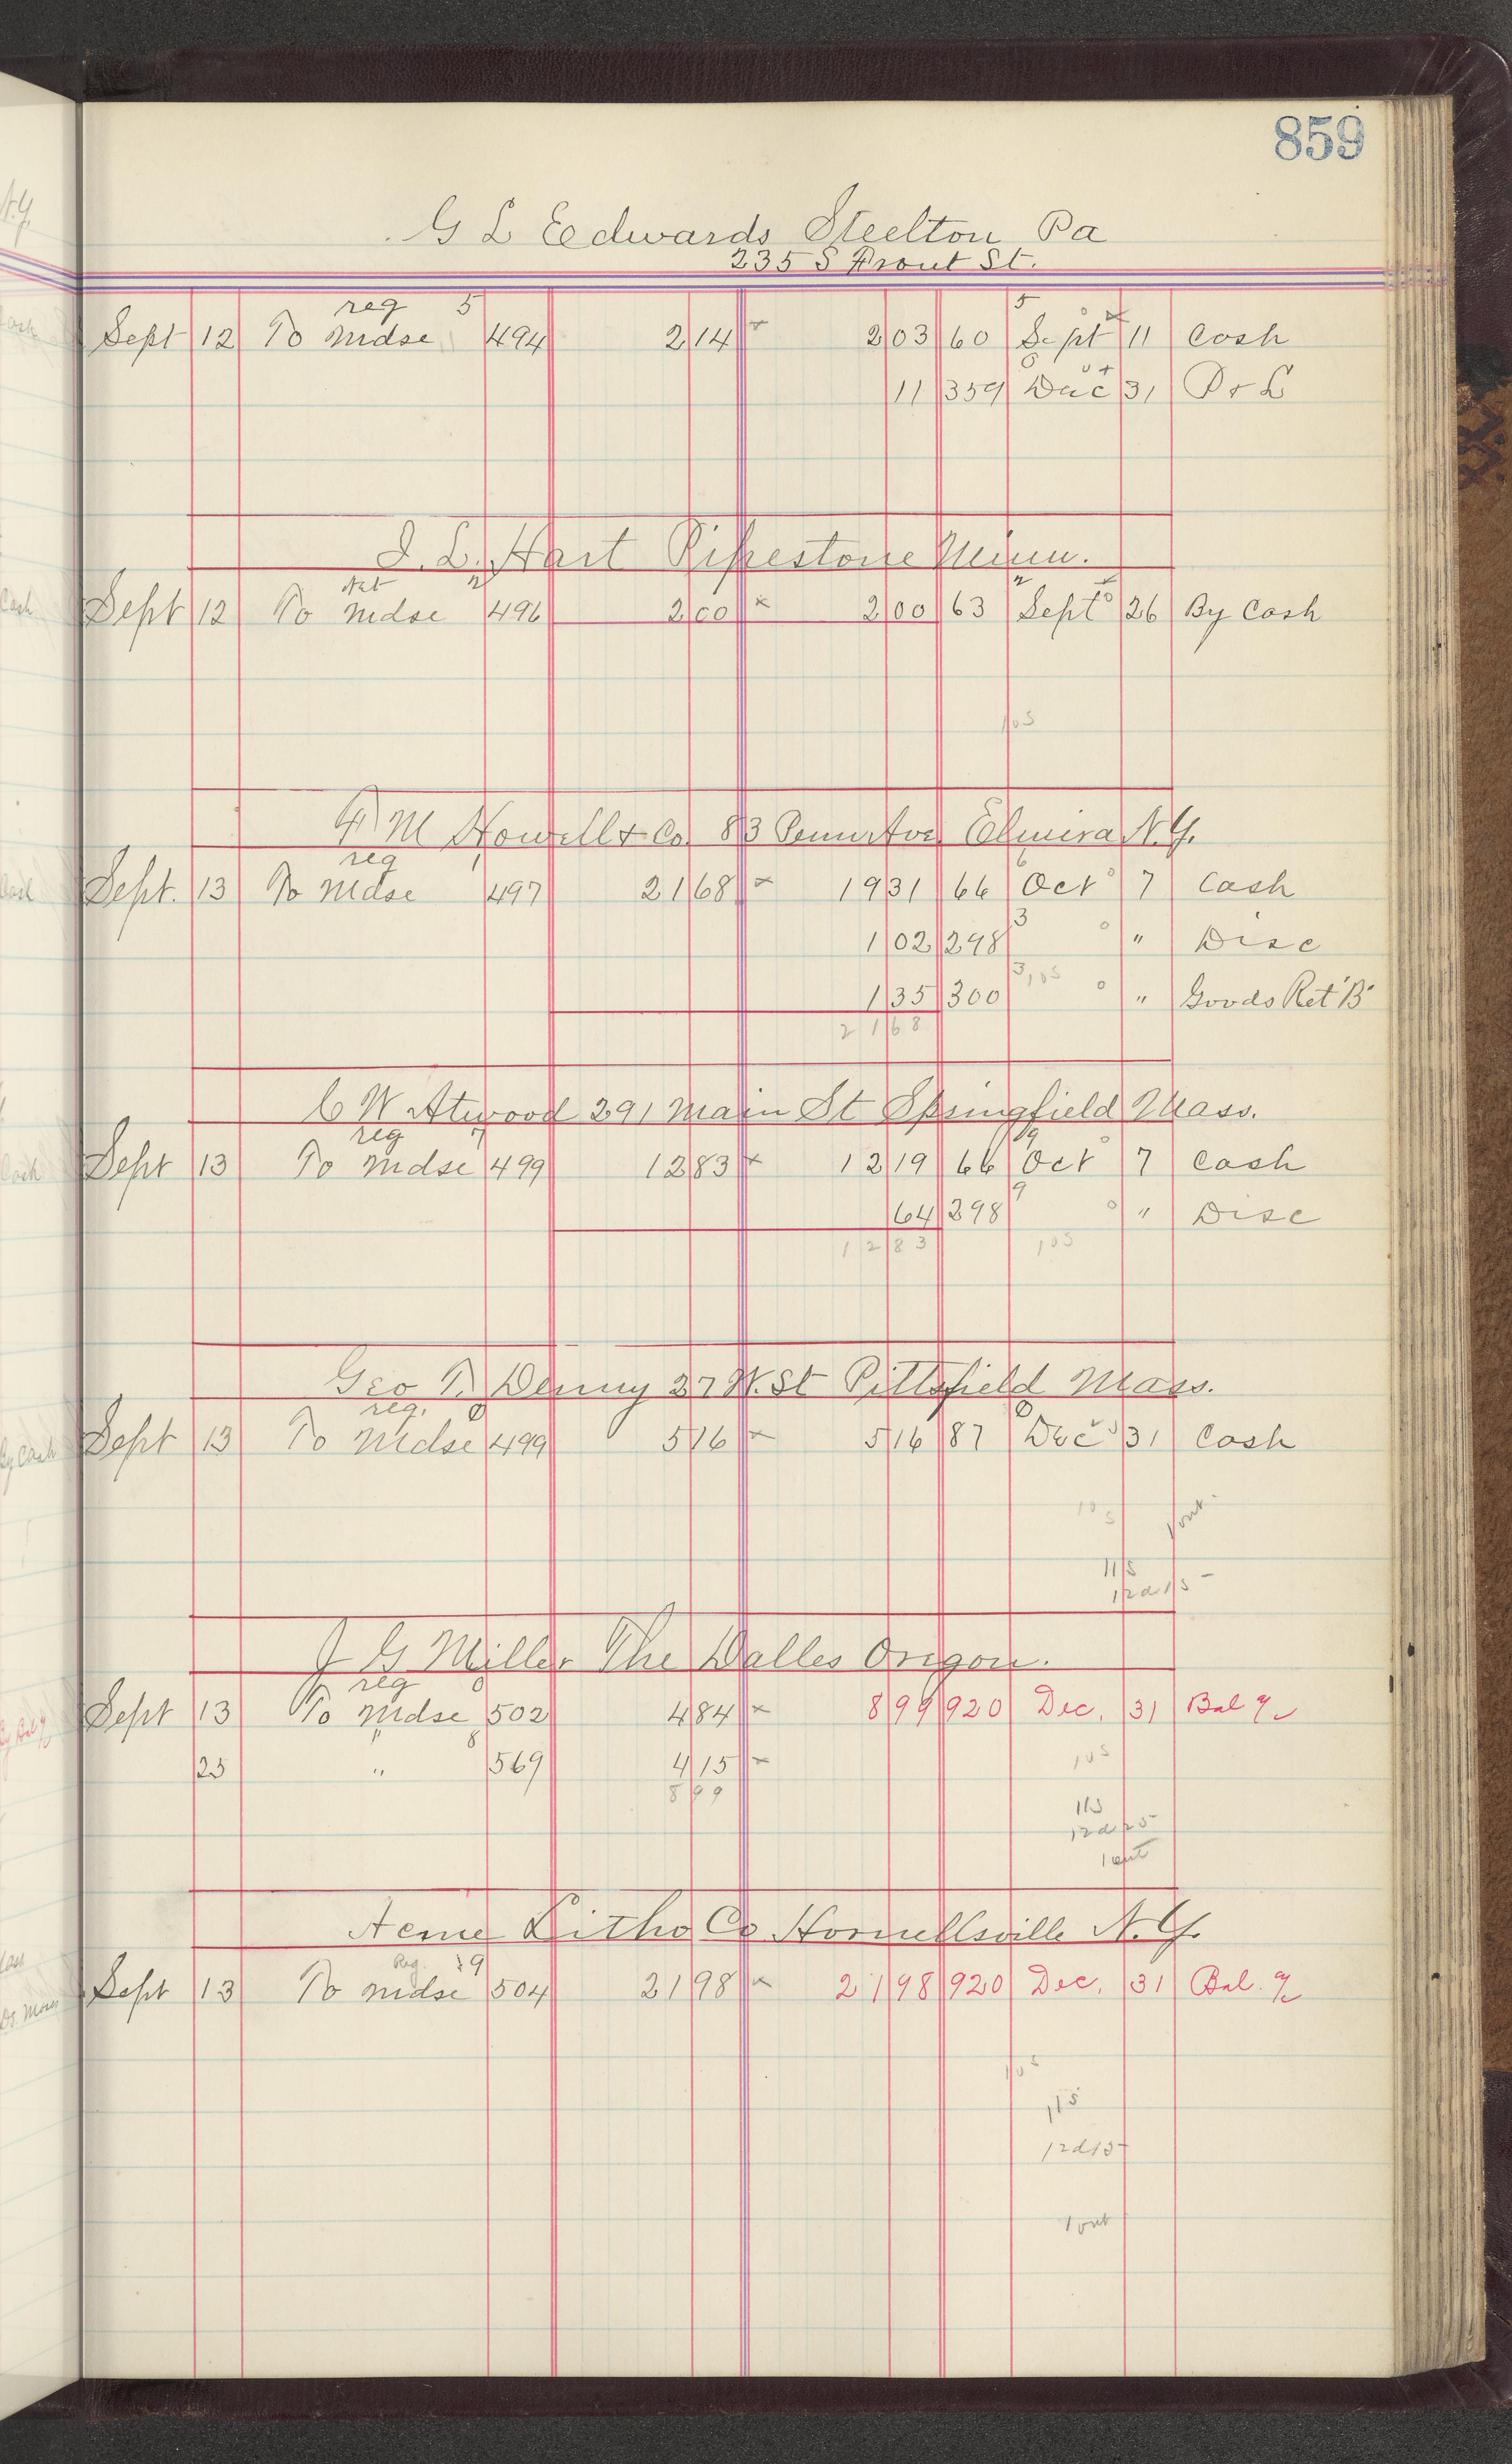 859
G L Edwards Steelton Pa
235 S Front St.
reg 5 5
Sept 12 To Mdse 494 2 14 203 60 Sept 11 Cash
11 359 Dec 31 P & L
J. L. Hart Pipestone Minn.
Net 2 2
Sept 12 To Mdse 496 2 00 2 00 63 Sept 26 By Cash
10 S
F M Howell & Co. 83 Penn Ave. Elmira N.Y.
reg 1 6
Sept. 13 To Mdse 497 21 68 19 31 66 Oct 7 Cash
3
1 02 298 " Disc
3 10 S
1 35 300 " Goods Ret "B"
2 1 6 8
C W Atwood 291 Main St Springfield Mass.
reg 7 9
Sept 13 To Mdse 499 12 83 12 19 66 Oct 7 Cash
9
64 298 " Disc
1 2 8 3 10 S
Geo T. Denny 27 W. St Pittsfield Mass.
reg. 0 0
Sept 13 To Mdse 499 5 16 5 16 87 Dec 31 Cash
10 S 1 ont
11 S
12 d 15
J G Miller The Dalles Oregon.
reg 0
Sept 13 To Mdse 502 4 84 8 99 920 Dec. 31 Bal a/c
" 8
25 " 569 4 15 10 S
8 9 9
11 S
12 d 25
1 ont
Acme Litho Co Hornellsville N.Y.
Reg. 19
Sept 13 To Mdse 504 21 98 21 98 920 Dec. 31 Bal. a/c
10 S
11 S
12 d 15
1 ont